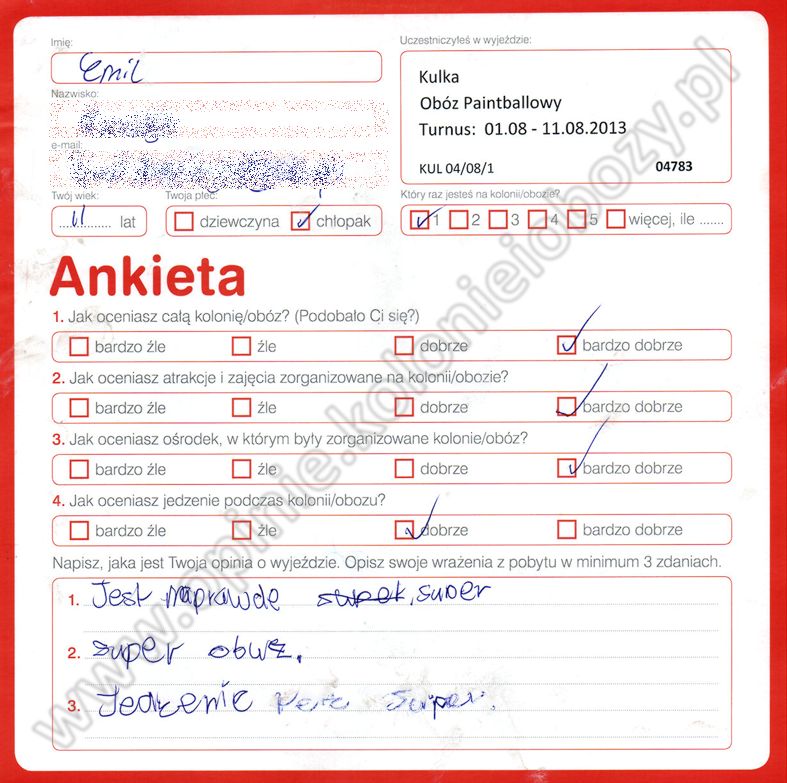 Imię:
Emil
Uczestniczyłeś w wyjeździe:
Kulka
Obóz Paintballowy
Turnus: 01.08 - 11.08.2013
KUL 04/08/1 04783
Nazwisko:
e-mail:
Twój wiek:
11 lat
Twoja płeć:
dziewczyna chłopak
Który raz jesteś na kolonii/obozie?
1 2 3 4 5 więcej, ile .......
Ankieta
1. Jak oceniasz całą kolonię/obóz? (Podobało Ci się?)
bardzo źle źle dobrze bardzo dobrze
2. Jak oceniasz atrakcje i zajęcia zorganizowane na kolonii/obozie?
bardzo źle źle dobrze bardzo dobrze
3. Jak oceniasz ośrodek, w którym były zorganizowane kolonie/obóz?
bardzo źle źle dobrze bardzo dobrze
4. Jak oceniasz jedzenie podczas kolonii/obozu?
bardzo źle źle dobrze bardzo dobrze
Napisz, jaka jest Twoja opinia o wyjeździe. Opisz swoje wrażenia z pobytu w minimum 3 zdaniach.
1. Jest naprawde super
2. super obuz.
3. Jedzenie super.
www.opinie.kolonieiobozy.pl